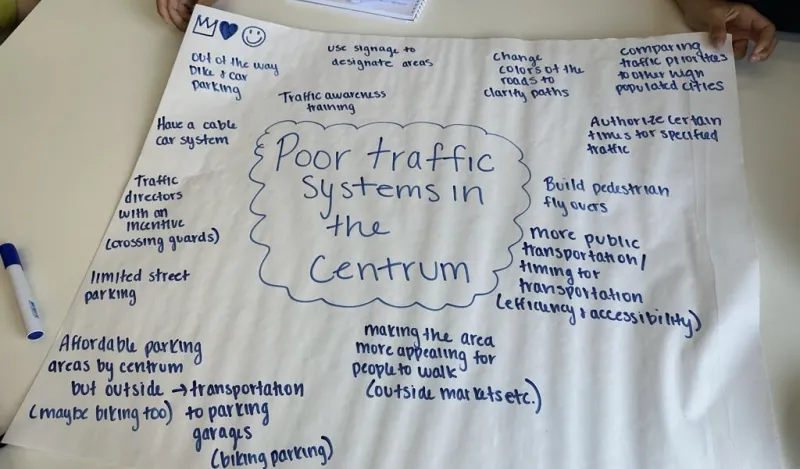 out of the way
bike & car
parking
use signage to
designate areas
change
colors of the
roads to
clarity paths
comparing
traffic priorities
to other high
populated cities
Traffic awareness
training
Have a cable
car system
Authorize certain
times for specified
traffic
Poor traffic
systems in
the
Centrum
Traffic
directors
with an
incentive
(crossing guards)
Build pedestrian
fly overs
more public
transportation/
timing for
transportation
(efficiency & accessibility)
limited street
parking
making the area
more appealing for
people to walk
(outside markets etc.)
Affordable parking
areas by centrum
but outside → transportation
(maybe biking too) to parking
garages
(biking parking)